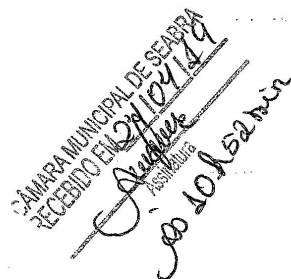 CÂMARA MUNICIPAL DE SEABRA
RECEBIDO EM 29/04/19
Assinatura
às 10h52min